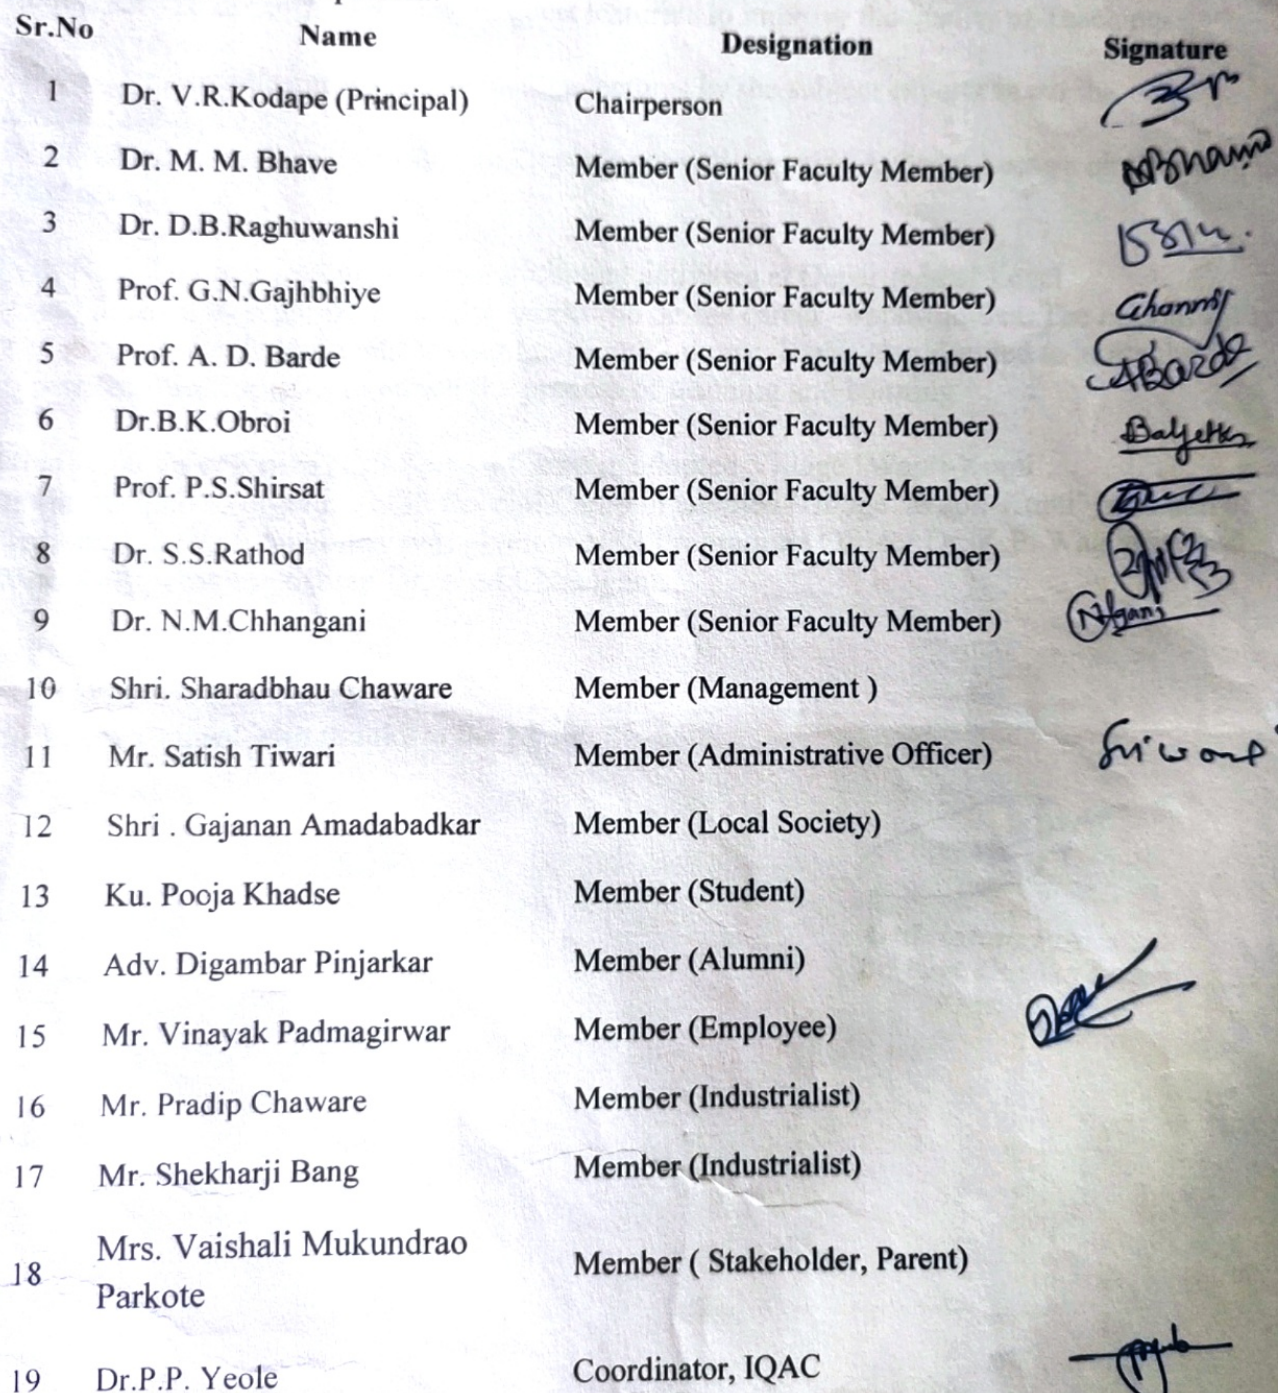 Sr.No Name Designation Signature
1 Dr. V.R.Kodape (Principal) Chairperson
2 Dr. M. M. Bhave Member (Senior Faculty Member)
3 Dr. D.B.Raghuwanshi Member (Senior Faculty Member)
4 Prof. G.N.Gajhbhiye Member (Senior Faculty Member)
5 Prof. A. D. Barde Member (Senior Faculty Member) ABarde
6 Dr.B.K.Obroi Member (Senior Faculty Member)
7 Prof. P.S.Shirsat Member (Senior Faculty Member)
8 Dr. S.S.Rathod Member (Senior Faculty Member)
9 Dr. N.M.Chhangani Member (Senior Faculty Member)
10 Shri. Sharadbhau Chaware Member (Management )
11 Mr. Satish Tiwari Member (Administrative Officer)
12 Shri . Gajanan Amadabadkar Member (Local Society)
13 Ku. Pooja Khadse Member (Student)
14 Adv. Digambar Pinjarkar Member (Alumni)
15 Mr. Vinayak Padmagirwar Member (Employee)
16 Mr. Pradip Chaware Member (Industrialist)
17 Mr. Shekharji Bang Member (Industrialist)
18 Mrs. Vaishali Mukundrao Member ( Stakeholder, Parent)
Parkote
19 Dr.P.P. Yeole Coordinator, IQAC